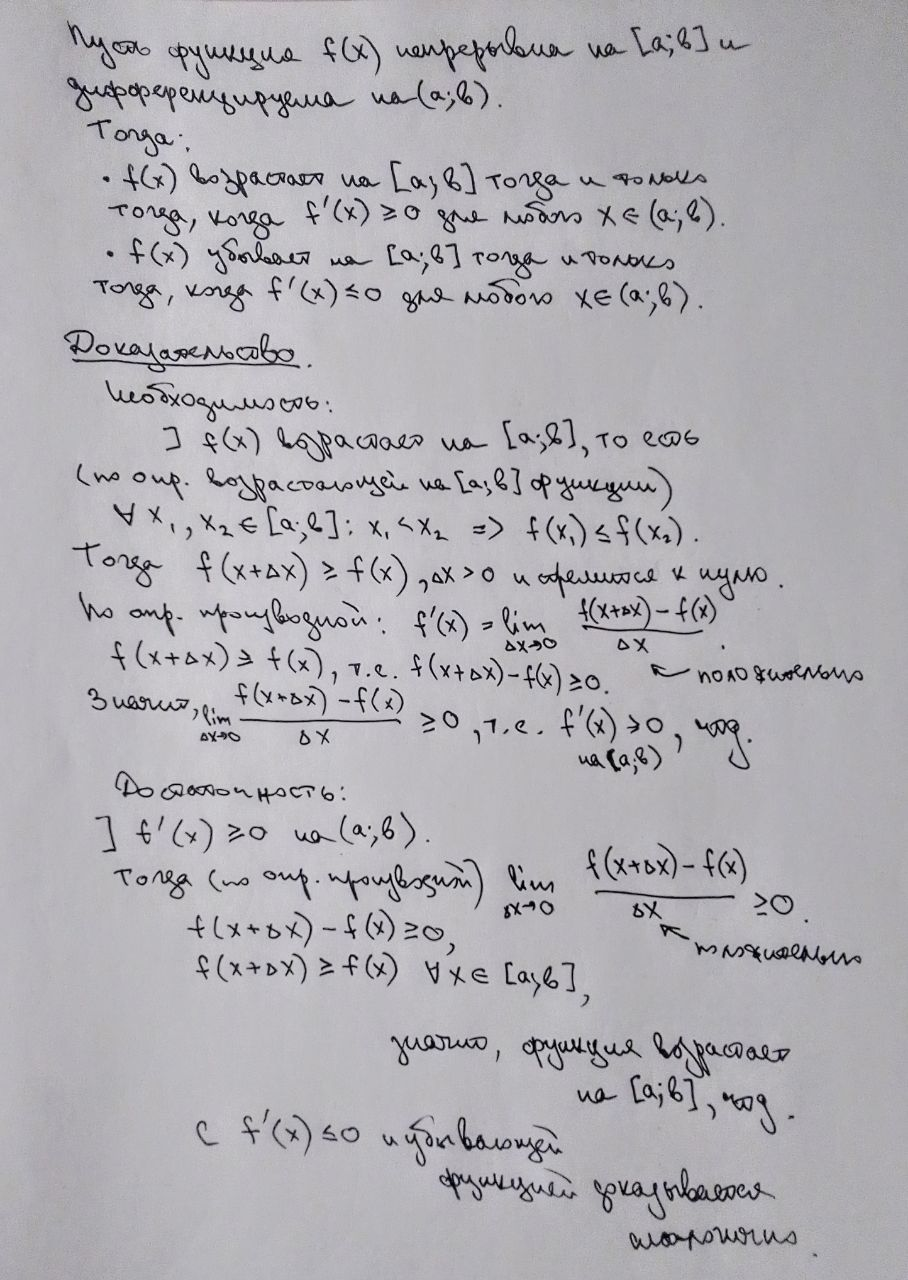 Пусть функция f(x) непрерывна на [a;b] и
дифференцируема на (a;b).
Тогда:
• f(x) возрастает на [a;b] тогда и только
тогда, когда f'(x) ≥ 0 для любого x ∈ (a;b).
• f(x) убывает на [a;b] тогда и только
тогда, когда f'(x) ≤ 0 для любого x ∈ (a;b).
Доказательство.
Необходимость:
] f(x) возрастает на [a;b], то есть
(по опр. возрастающей на [a;b] функции)
∀ x₁, x₂ ∈ [a;b]: x₁ < x₂ => f(x₁) ≤ f(x₂).
Тогда f(x+Δx) ≥ f(x), Δx > 0 и стремится к нулю.
По опр. производной: f'(x) = lim Δx→0 (f(x+Δx) − f(x))/Δx.
f(x+Δx) ≥ f(x), т.е. f(x+Δx) − f(x) ≥ 0. ← положительно
Значит, lim Δx→0 (f(x+Δx) − f(x))/Δx ≥ 0, т.е. f'(x) ≥ 0, чтд.
на (a;b)
Достаточность:
] f'(x) ≥ 0 на (a;b).
Тогда (по опр. производной) lim Δx→0 (f(x+Δx) − f(x))/Δx ≥ 0.
f(x+Δx) − f(x) ≥ 0, ← положительно
f(x+Δx) ≥ f(x) ∀ x ∈ [a;b],
значит, функция возрастает
на [a;b], чтд.
С f'(x) ≤ 0 и убывающей
функцией доказывается
аналогично.